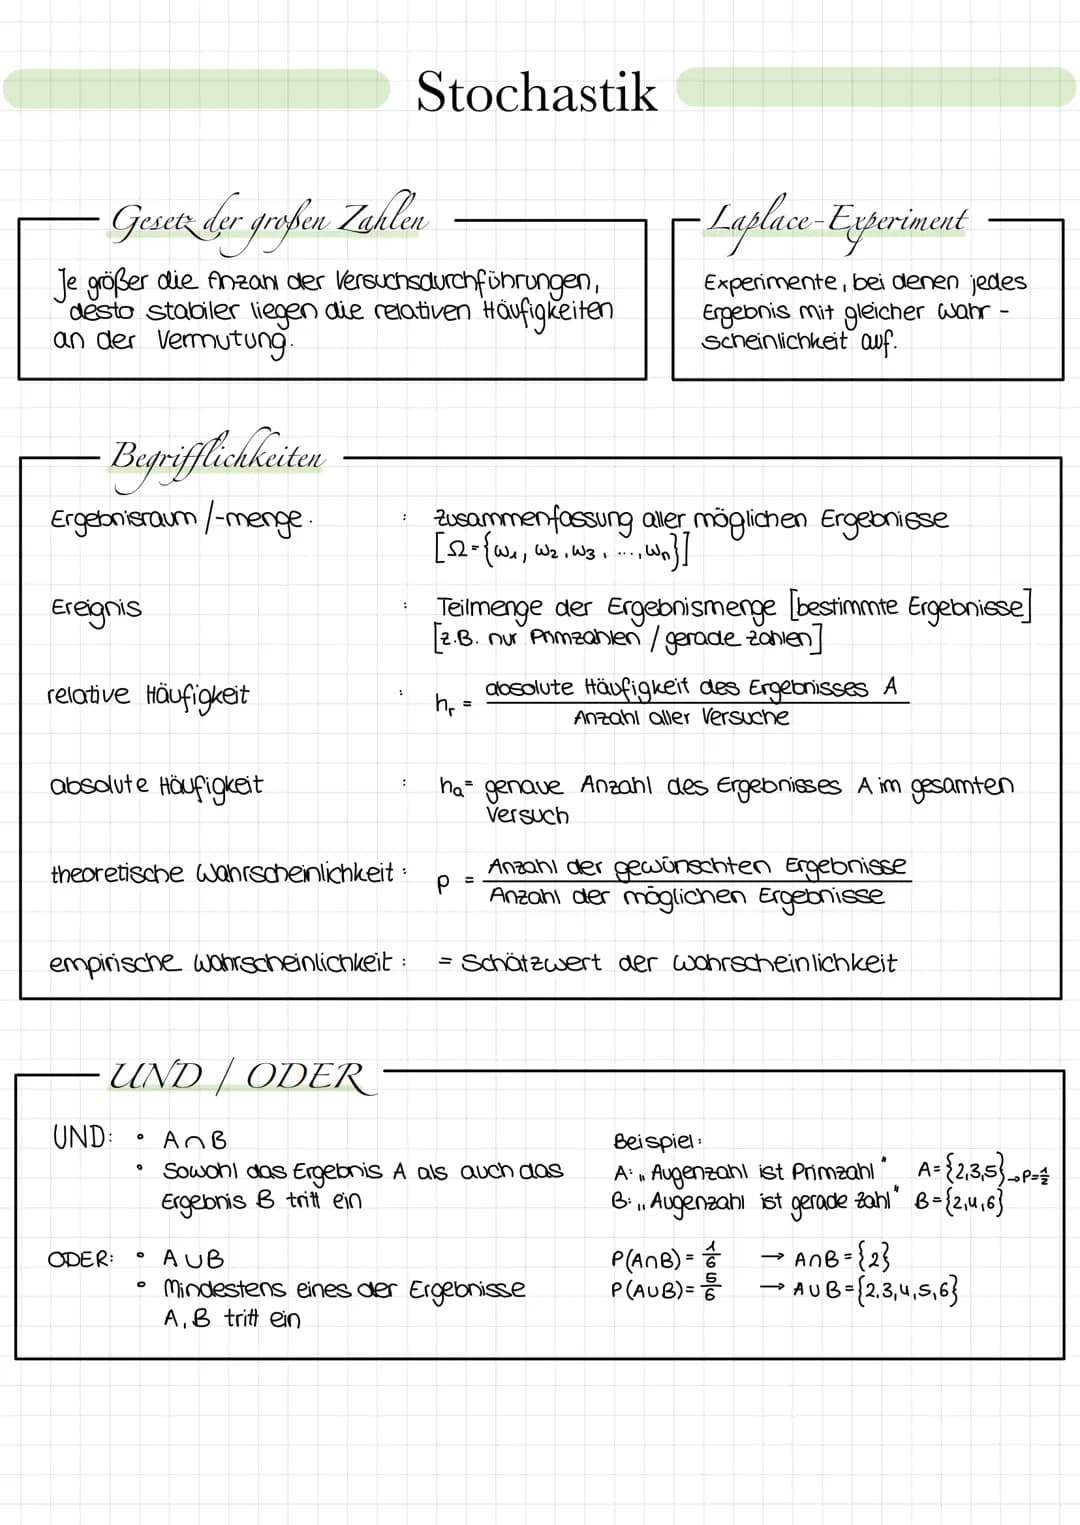 Stochastik
Gesetz der großen Zahlen
Je größer die Anzahl der Versuchsdurchführungen,
desto stabiler liegen die relativen Häufigkeiten
an der Vermutung.
Laplace-Experiment
Experimente, bei denen jedes
Ergebnis mit gleicher Wahr-
scheinlichkeit auf.
Begrifflichkeiten
Ergebnisraum /-menge. : Zusammenfassung aller möglichen Ergebnisse
[Ω={ω₁, ω₂, ω₃, ..., ωₙ}]
Ereignis : Teilmenge der Ergebnismenge [bestimmte Ergebnisse]
[z.B. nur Primzahlen / gerade zahlen]
relative Häufigkeit : hᵣ = absolute Häufigkeit des Ergebnisses A
Anzahl aller Versuche
absolute Häufigkeit : hₐ= genaue Anzahl des Ergebnisses A im gesamten
Versuch
theoretische Wahrscheinlichkeit : p = Anzahl der gewünschten Ergebnisse
Anzahl der möglichen Ergebnisse
empirische Wahrscheinlichkeit : = Schätzwert der Wahrscheinlichkeit
UND / ODER
UND: • A∩B
• Sowohl das Ergebnis A als auch das
Ergebnis B tritt ein
ODER: • A∪B
• Mindestens eines der Ergebnisse
A, B tritt ein
Beispiel:
A: „Augenzahl ist Primzahl" A={2,3,5} →P=1/2
B: „Augenzahl ist gerade Zahl" B={2,4,6}
P(A∩B)= 1/6 → A∩B={2}
P(A∪B)= 5/6 → A∪B={2,3,4,5,6}